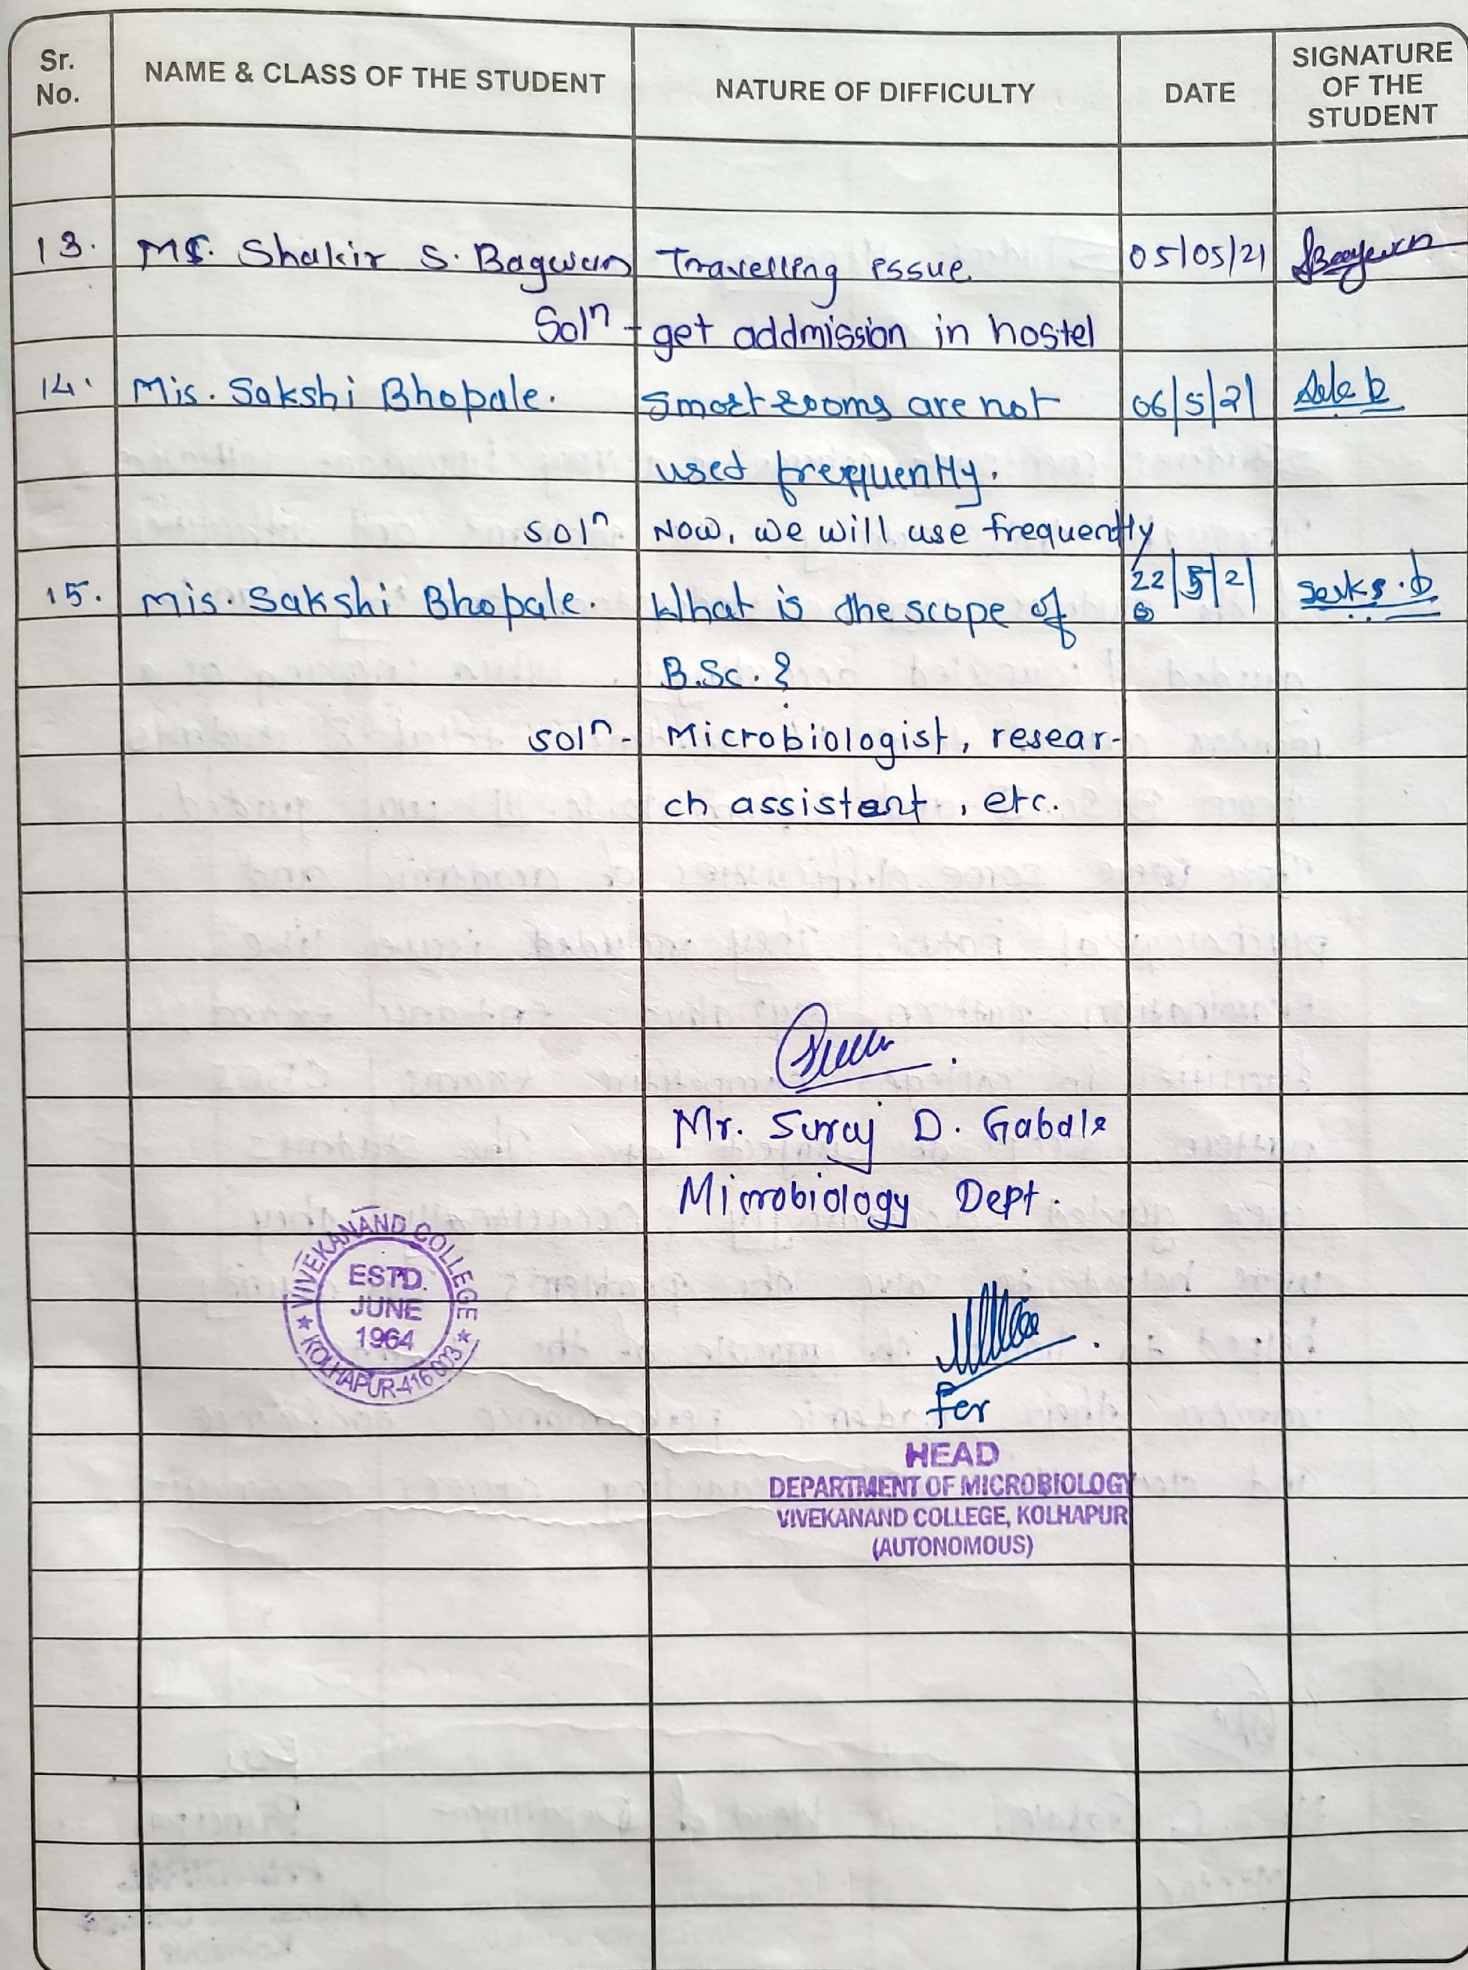 Sr. No.
NAME & CLASS OF THE STUDENT
NATURE OF DIFFICULTY
DATE
SIGNATURE OF THE STUDENT
13. Mr. Shakir S. Bagwan Travelling issue 05/05/21
Solⁿ - get addmission in hostel
14. Mis. Sakshi Bhopale. Smart rooms are not 06/5/21
used frequently.
solⁿ Now, we will use frequently
15. Mis. Sakshi Bhopale. What is the scope of 22/5/21 saks.b
B.Sc. ?
solⁿ - Microbiologist, resear-
ch assistant, etc.
Mr. Suraj D. Gabale
Microbiology Dept.
VIVEKANAND COLLEGE
ESTD.
JUNE
1964
KOLHAPUR-416 003
For
HEAD
DEPARTMENT OF MICROBIOLOGY
VIVEKANAND COLLEGE, KOLHAPUR
(AUTONOMOUS)